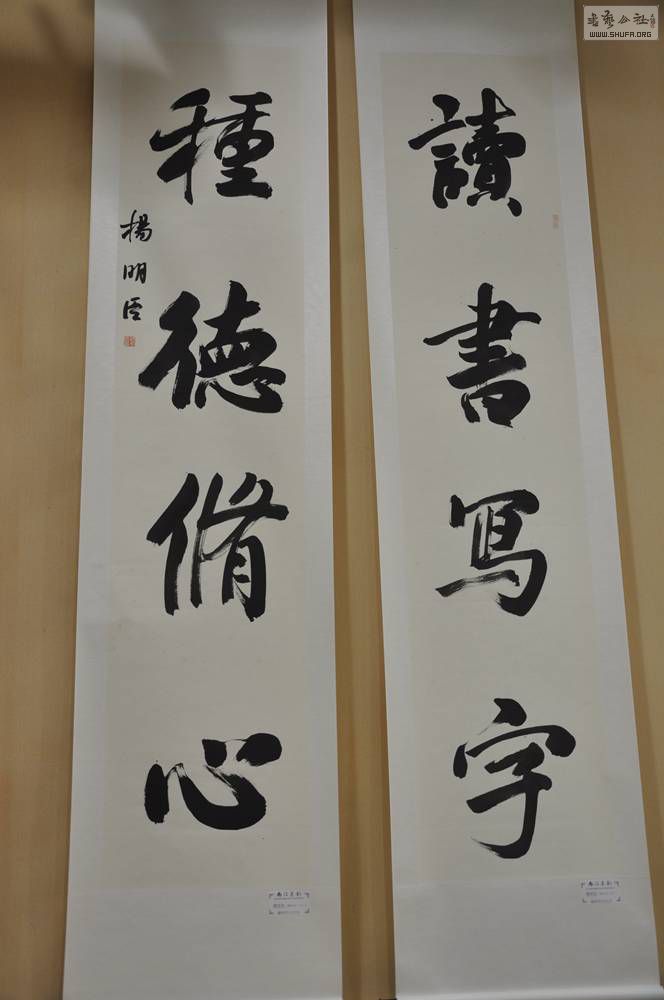 讀書寫字
種德脩心
楊明臣
書藝公社
WWW.SHUFA.ORG